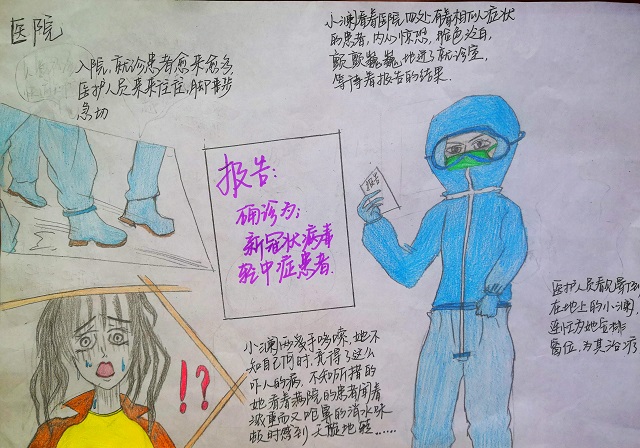 医院
入院,就诊患者愈来愈多,
医护人员来来往往,脚步
急切
小澜看着医院四处有着相似症状
的患者,内心惊恐,脸色泛白,
颤颤巍巍地进了就诊室,
等待着报告的结果.
报告
报告:
确诊为:
新冠状病毒
轻中症患者.
医护人员看见晕倒
在地上的小澜,
连忙为她安排
留位,为其治疗
小澜两双手哆嗦,她不
知自己何时,竟得了这么
吓人的病,不知所措的
她看着病院的患者闻着
浓重而又呛鼻的消水味
顿时感到天旋地转……
!?